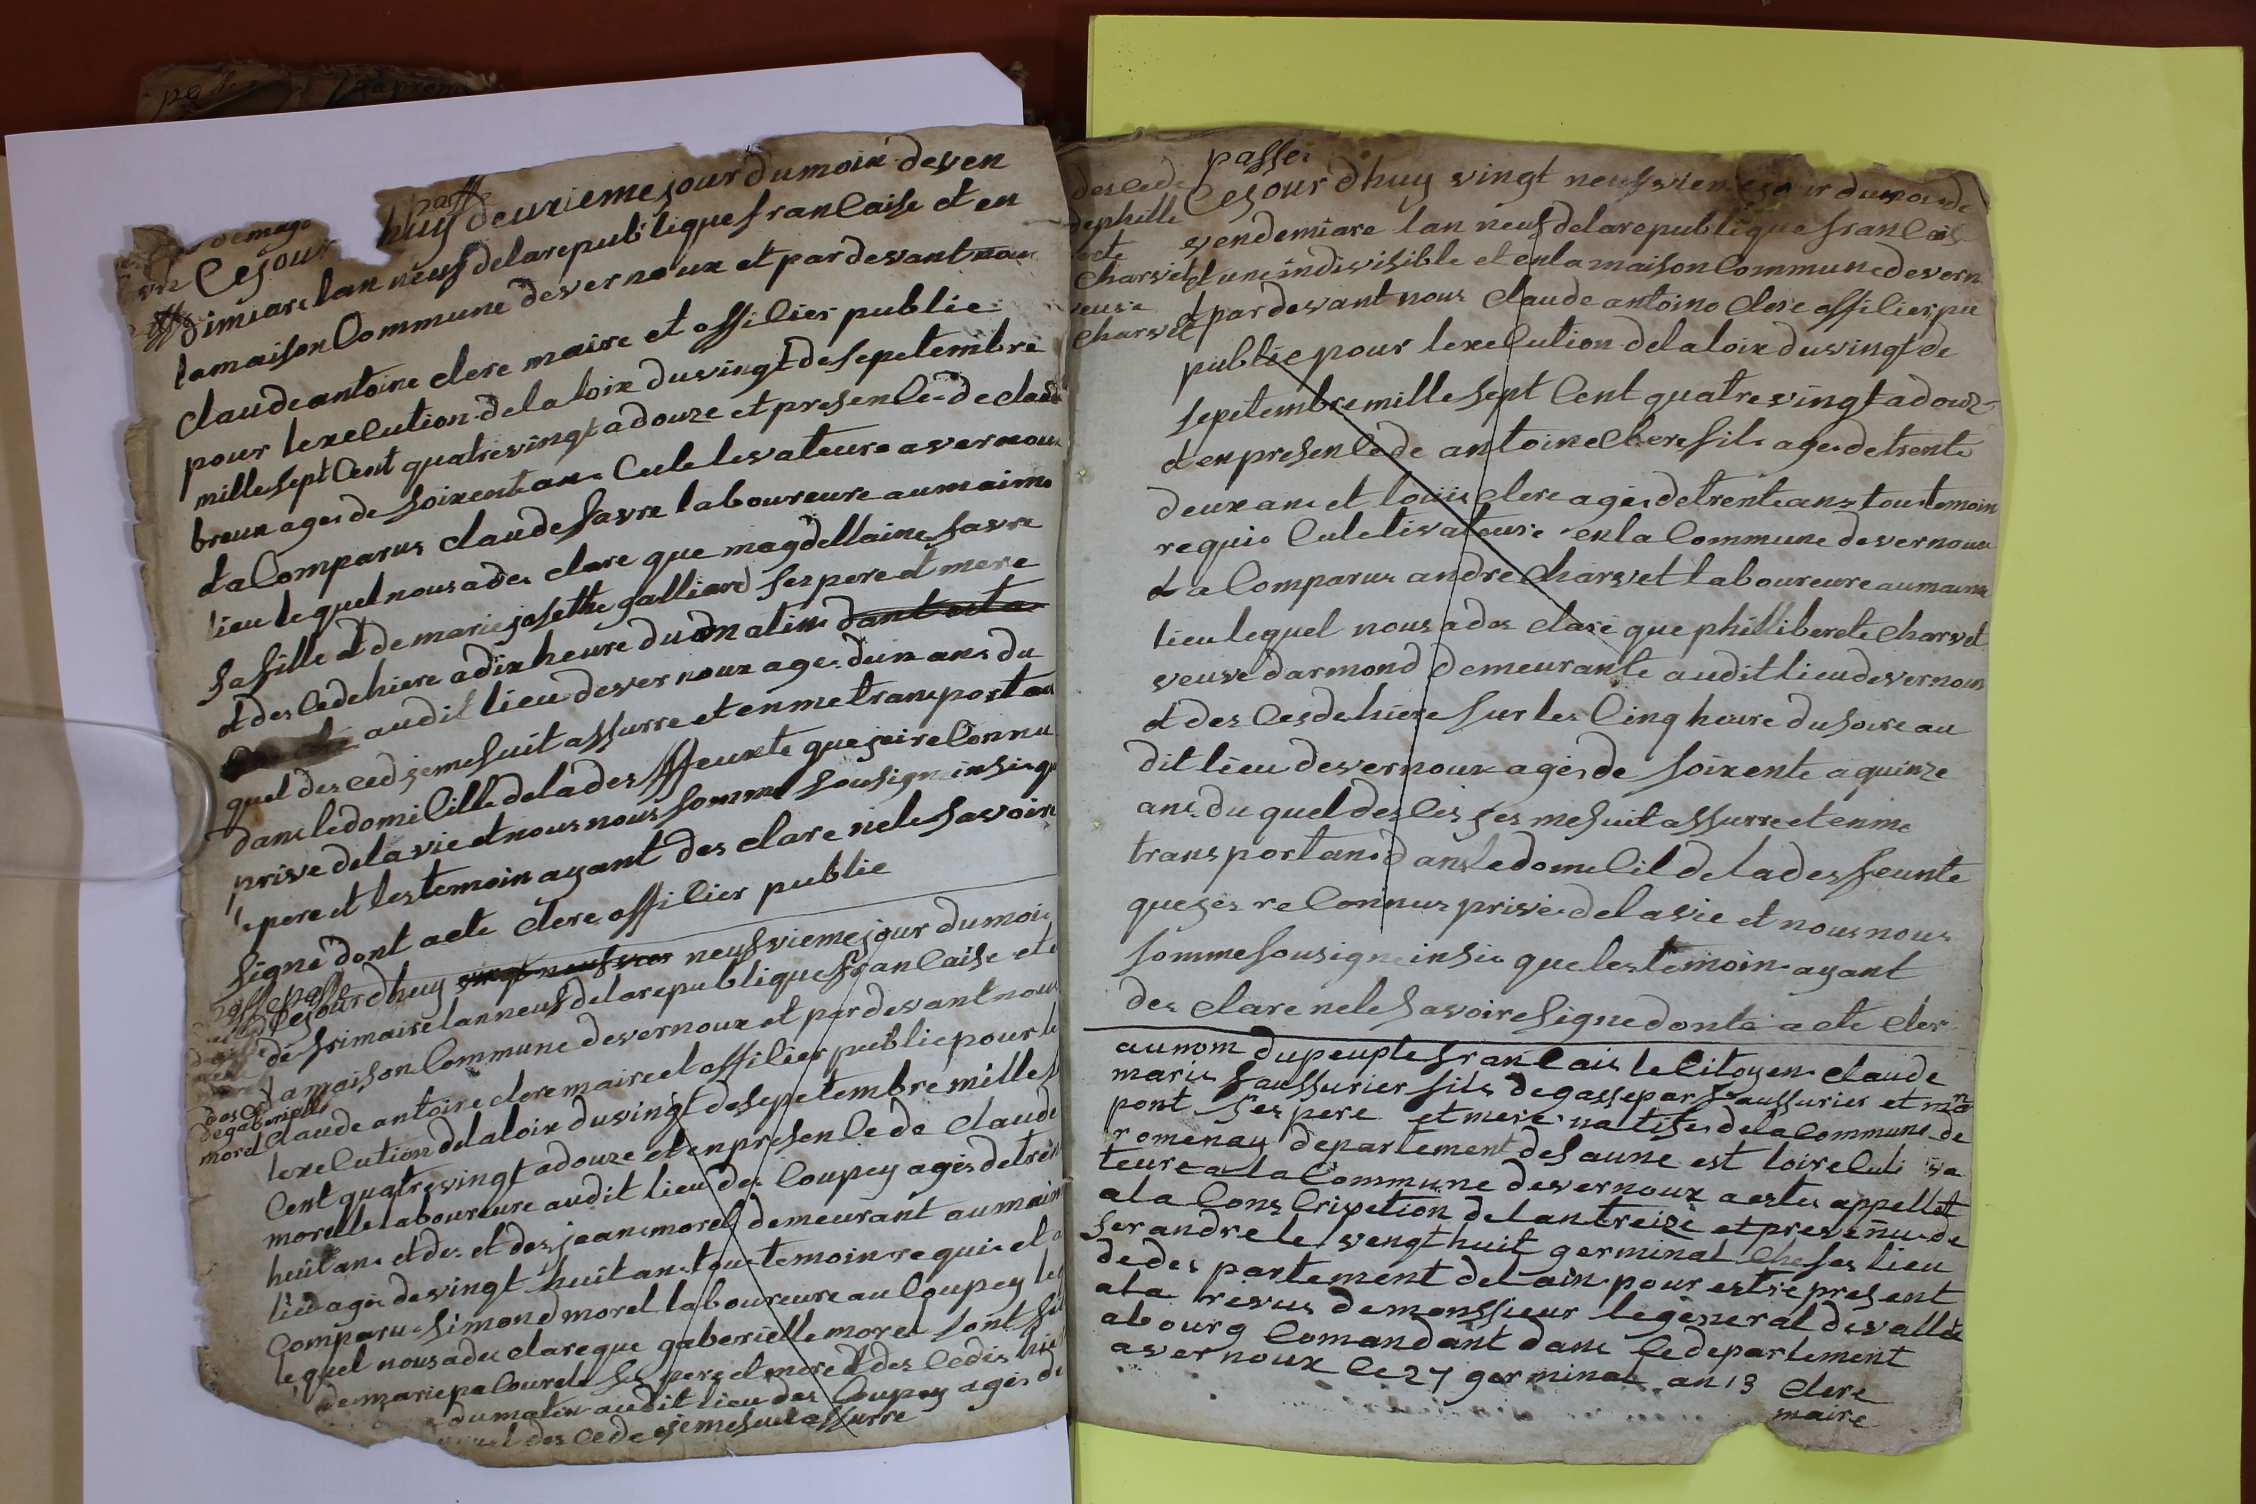 passé
Ce jour huy deuxieme jour du moix de ven
dimiare lan neuf de la republique francaise et en
la maison Commune de vernoux et par devant nou
claude antoine clere maire et offilier publie
pour lexelution de la loix du vingt de sepetembre
mille sept Cent quatre vingt a douze et presenle de claude
breux ages de soixent ans Culelevateure a vernoux
et a Comparus claude favre laboureure au maime
lieu le quel nous a des clare que magdellaine favre
sa fille et de marie josethe galliard ses pere et mere
et des lede hiere a dix heure du matin dant acta
audit lieu de vernoux ages dun ans du
quel des ced je me suit assurre et en me transportan
dans le domilille de la des ffeunte que jei relonnu
prive de la vie et nous nous somme sousigne insi que
le pere et les temoin ayant des clare nele savoire
signe dont acte clere offilier publie
passe passe
Ce jourdhuy vingt neufvieme neufvieme jour du mois
de frimaire lan neuf de la republique francaise et e
la maison Commune de vernoux et par devant nous
des Ced
de gaberielle
morel
claude antoine clere maire et offilier publie pour le
lexelution de la loix du vingt de sepetembre mille s
Cent quatre vingt a douze et en presenle de claude
morelle laboureure audit lieu des Coupey ages de tren
huit ans et des et des jean morel demeurant au maim
lieu ages de vingt huit ans tous temoin requis et a
Comparu simond morel laboureure au Coupey le
le quel nous a des clare que gaberielle morel sont fil
de marie palourele ses pere et mere et des ledes hie
du matin audit lieu des Coupey ages de
des lede je me suit assurre
passé
des lede
de phille
berte
charvet
veuve
charvet
Ce jour dhuy vingt neufvieme jour du mois de
vendemiare lan neuf de la republique francaise
et une indivisible et en la maison Commune de vern
et par devant nous claude antoino clere offilier pu
publie pour lexelution de la loix du vingt de
sepetembre mille sept Cent quatre vingt a douze
et en presenle de antoine clere fils ages de trente
deux ans et louis clere ages de trente ans tous temoin
requis Culetivateure en la Commune de vernoux
et a Comparus andre charvet laboureure au maime
lieu lequel nous a des clare que philliberete charvet
veuve darmond demeurante audit lieu de vernoux
et des Ces de hiere sur les Cinq heure du soire au
dit lieu de vernoux ages de soixente a quinze
ans du quel des Ces jes me suit assurre et en me
transportant dans le domelil de la des feunte
que jes relonnus prive de la vie et nous nous
somme sousigne insi que les temoin ayant
des clare nele savoire signe donte acte cler
au nom du peuple francais le Citoyen claude
marie saussurier fils de gassepar saussurier et ma
pont ses pere et mere natife de la commune de
romenay departement de saune est loire Culi va
teure a la Commune de vernoux a estes appellet
a la Conscripetion de lan treize et prevenu de
se randre le vengt huit germinal chefes lieu
de des partement de lain pour estre present
a la revus de monssieur le general de vallet
a bourg Comandant dans le departement
a vernoux le 27 germinal an 13 clere
maire